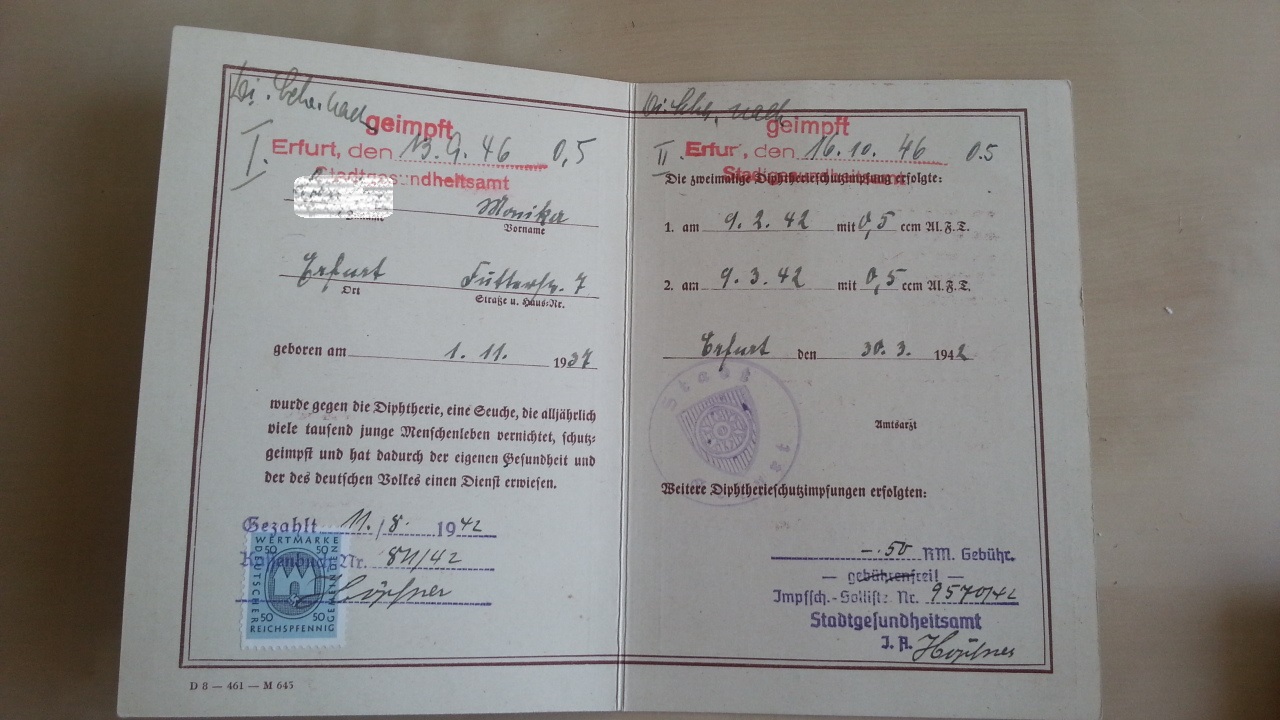 geimpft
I. Erfurt, den 13.9.46 0,5
Stadtgesundheitsamt
Monika
Vorname
Erfurt Futterstr. 7
Ort Straße u. Haus=Nr.
geboren am 1. 11. 1937
wurde gegen die Diphtherie, eine Seuche, die alljährlich
viele tausend junge Menschenleben vernichtet, schutz=
geimpft und hat dadurch der eigenen Gesundheit und
der des deutschen Volkes einen Dienst erwiesen.
Gezahlt 11./8. 1942
Kassenbuch Nr. 81/42
Höpfner
WERTMARKE
50 50
DEUTSCHER
GEMEINDEN
50 50
REICHSPFENNIG
D 8 — 461 — M 645
nach
geimpft
II. Erfur, den 16.10. 46 0.5
Die zweimalige Diphtherieschutzimpfung erfolgte:
1. am 9. 2. 42 mit 0,5 ccm Al.F.T.
2. am 9. 3. 42 mit 0,5 ccm Al.F.T.
Erfurt den 30. 3. 1942
Stadt
Amtsarzt
Weitere Diphtherieschutzimpfungen erfolgten:
—.50 RM. Gebühr.
— gebührenfrei! —
Impfsch.-Solliste Nr. 9570/42
Stadtgesundheitsamt
I. A. Höpfner